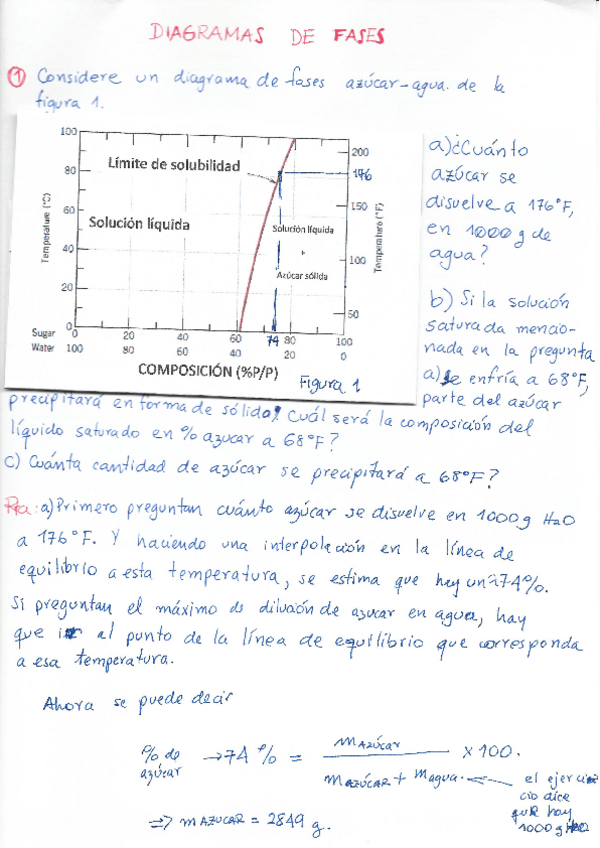 DIAGRAMAS DE FASES
① Considere un diagrama de fases azúcar-agua. de la
figura 1.
100
80
60
40
20
0
Temperature (°C)
Límite de solubilidad
Solución líquida
Solución líquida
+
Azúcar sólida
200
176
150
100
50
Temperature (°F)
Sugar 0 20 40 60 74 80 100
Water 100 80 60 40 20 0
COMPOSICIÓN (%P/P)
Figura 1
a) ¿Cuánto
azúcar se
disuelve a 176°F,
en 1000 g de
agua?
b) Si la solución
saturada mencio-
nada en la pregunta
a) se enfría a 68°F,
parte del azúcar
precipitará en forma de sólido. ¿Cuál será la composición del
líquido saturado en % azucar a 68°F?
c) Cuánta cantidad de azúcar se precipitará a 68°F?
Rta: a) Primero preguntan cuánto azúcar se disuelve en 1000 g H2O
a 176°F. Y haciendo una interpolación en la línea de
equilibrio a esta temperatura, se estima que hay un ~74%.
Si preguntan el máximo de dilución de azucar en agua, hay
que ir al punto de la línea de equilibrio que corresponda
a esa temperatura.
Ahora se puede decir
% de azúcar → 74 % = mAZÚCAR / mAZÚCAR + magua. x 100.
el ejerci
cio dice
que hay
1000 g H2O
⇒ mAZUCAR = 2849 g.